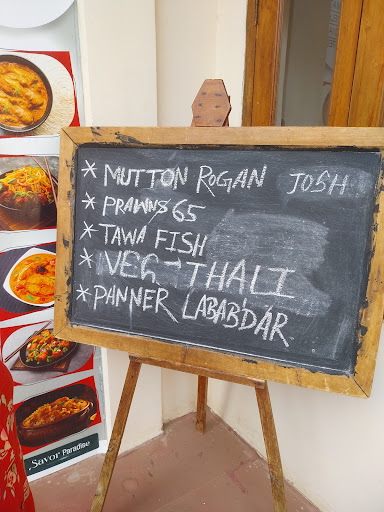 * MUTTON ROGAN JOSH
* PRAWNS 65
* TAWA FISH
* VEG THALI
* PANNER LABABDAR
Savor Paradise